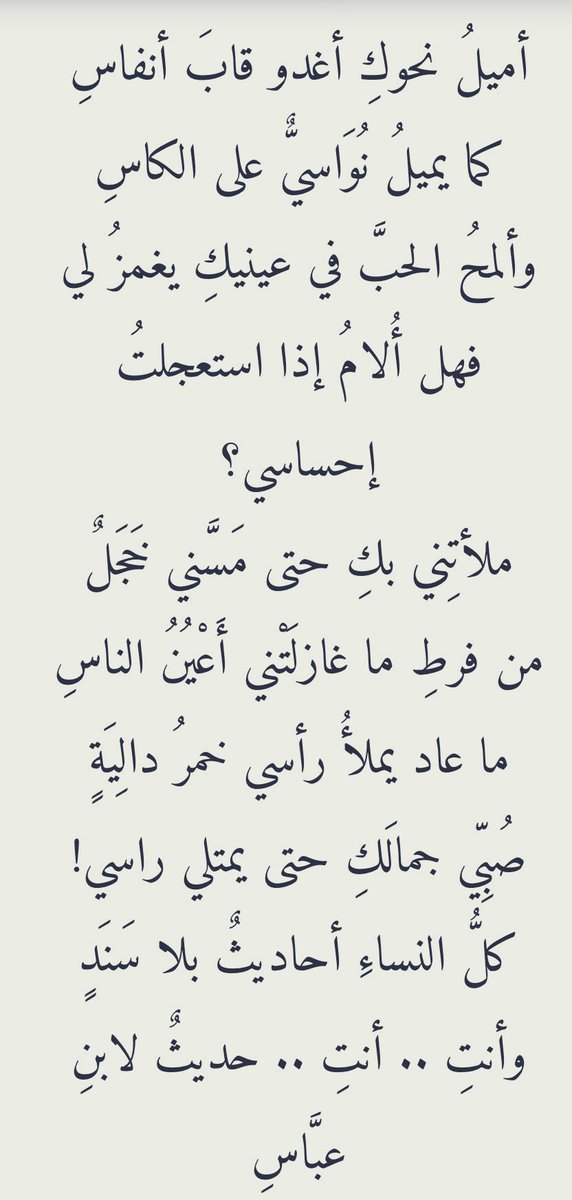 أميلُ نحوكِ أغدو قابَ أنفاسِ
كما يميلُ نُوَاسيٌّ على الكاسِ
وألمحُ الحبَّ في عينيكِ يغمزُ لي
فهل أُلامُ إذا استعجلتُ
إحساسي؟
ملأتِني بكِ حتى مَسَّني خَجَلٌ
من فرطِ ما غازلَتْني أَعْيُنُ الناسِ
ما عاد يملأُ رأسي خمرُ دالِيَةٍ
صُبِّي جمالَكِ حتى يمتلي راسي!
كلُّ النساءِ أحاديثٌ بلا سَنَدٍ
وأنتِ .. أنتِ .. حديثٌ لابنِ
عبَّاسِ